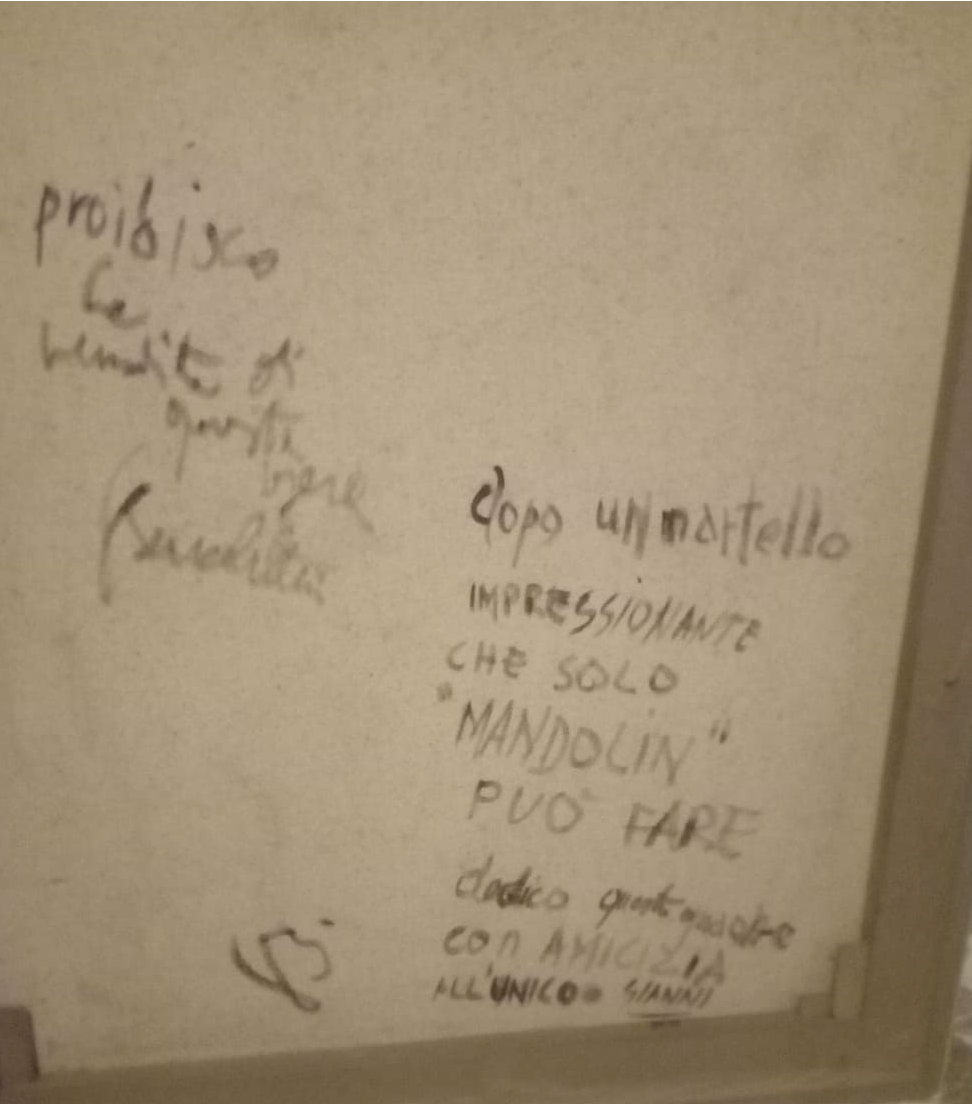 proibisco
la
vendita di
questa
opera
dopo un martello
IMPRESSIONANTE
CHE SOLO
"MANDOLIN"
PUO' FARE
dedico questo quadro
con AMICIZIA
ALL'UNICO GIANNI